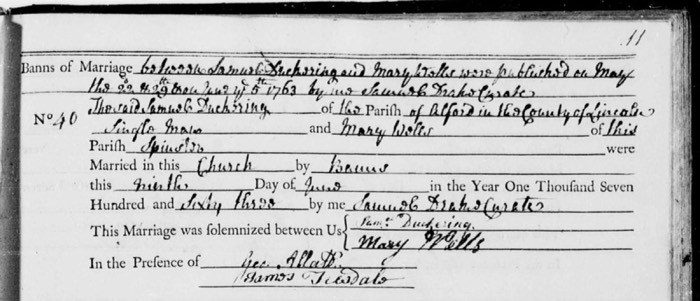 11
Banns of Marriage between Samuel Duckering and Mary Wells were published on May
the 22d & 29th and June ye 5th 1763 by me Samuel Drake Curate
No 40 The said Samuel Duckering of the Parish of Alford in the County of Lincoln
Single Man and Mary Wells of this
Parish Spinster were
Married in this Church by Banns
this ninth Day of June in the Year One Thousand Seven
Hundred and Sixty three by me Samuel Drake Curate
This Marriage was solemnized between Us { Saml Duckering
Mary Wells
In the Presence of Geo
James Tisdale